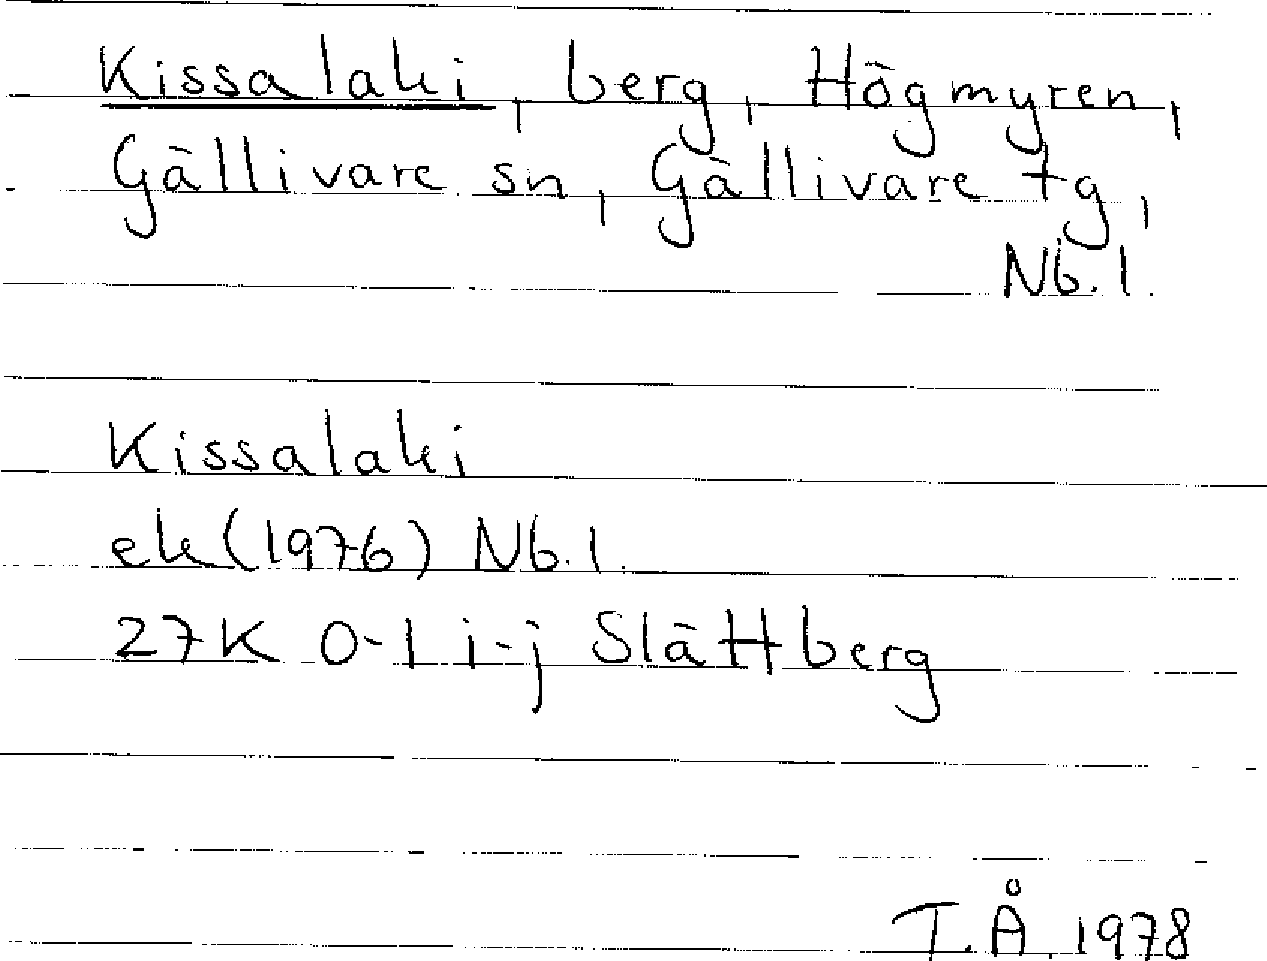 Kissalaki, berg, Högmyren,
Gällivare sn, Gällivare tg,
Nb. l.
Kissalaki
ek (1976) Nb. l.
27K 0-1 i-j Slättberg
T.Å. 1978